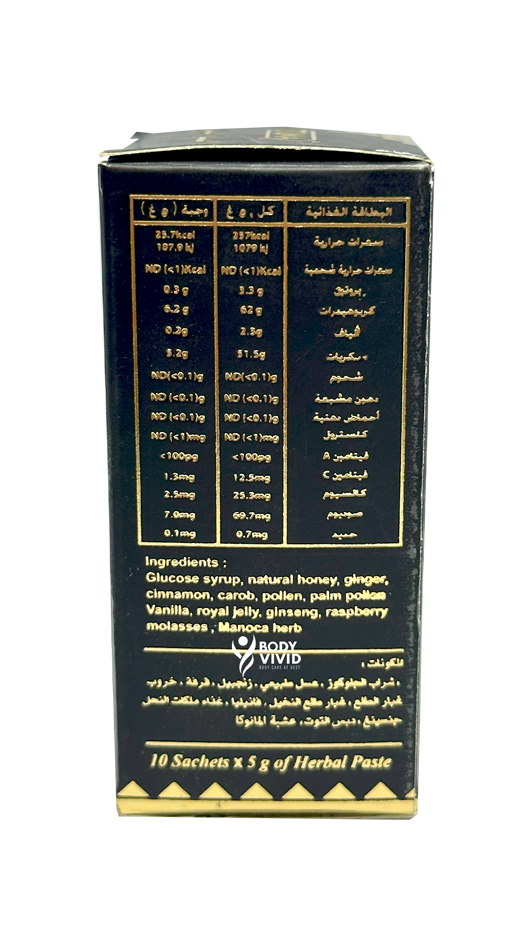 البطاقة الغذائية كل . و غ وجبة ( و غ )
سعرات حرارية 257kcal 1079 kj 25.7kcal 107.9 kj
سعرات حرارية شحمية ND (<1)Kcal ND (<1)Kcal
بروتين 3.3 g 0.3 g
كربوهيدرات 62 g 6.2 g
ألياف 2.3g 0.2g
سكريات 31.5g 3.2g
شحوم ND(<0.1)g ND(<0.1)g
دهون مشبعة ND (<0.1)g ND (<0.1)g
أحماض دهنية ND (<0.1)g ND (<0.1)g
كلسترول ND (<1)mg ND (<1)mg
فيتامين A <100pg <100pg
فيتامين C 12.5mg 1.3mg
كالسيوم 25.3mg 2.5mg
صوديوم 69.7mg 7.0mg
حديد 0.7mg 0.1mg
Ingredients :
Glucose syrup, natural honey, ginger,
cinnamon, carob, pollen, palm pollen
Vanilla, royal jelly, ginseng, raspberry
molasses , Manoca herb
BODY
VIVID
BODY CARE AT BEST
المكونات :
شراب الجلوكوز , عسل طبيعي , زنجبيل , قرفة , خروب ,
غبار الطلع , غبار طلع النخيل , فانيليا , غذاء ملكات النحل
جنسينغ , دبس التوت, عشبة المانوكا
10 Sachets x 5 g of Herbal Paste